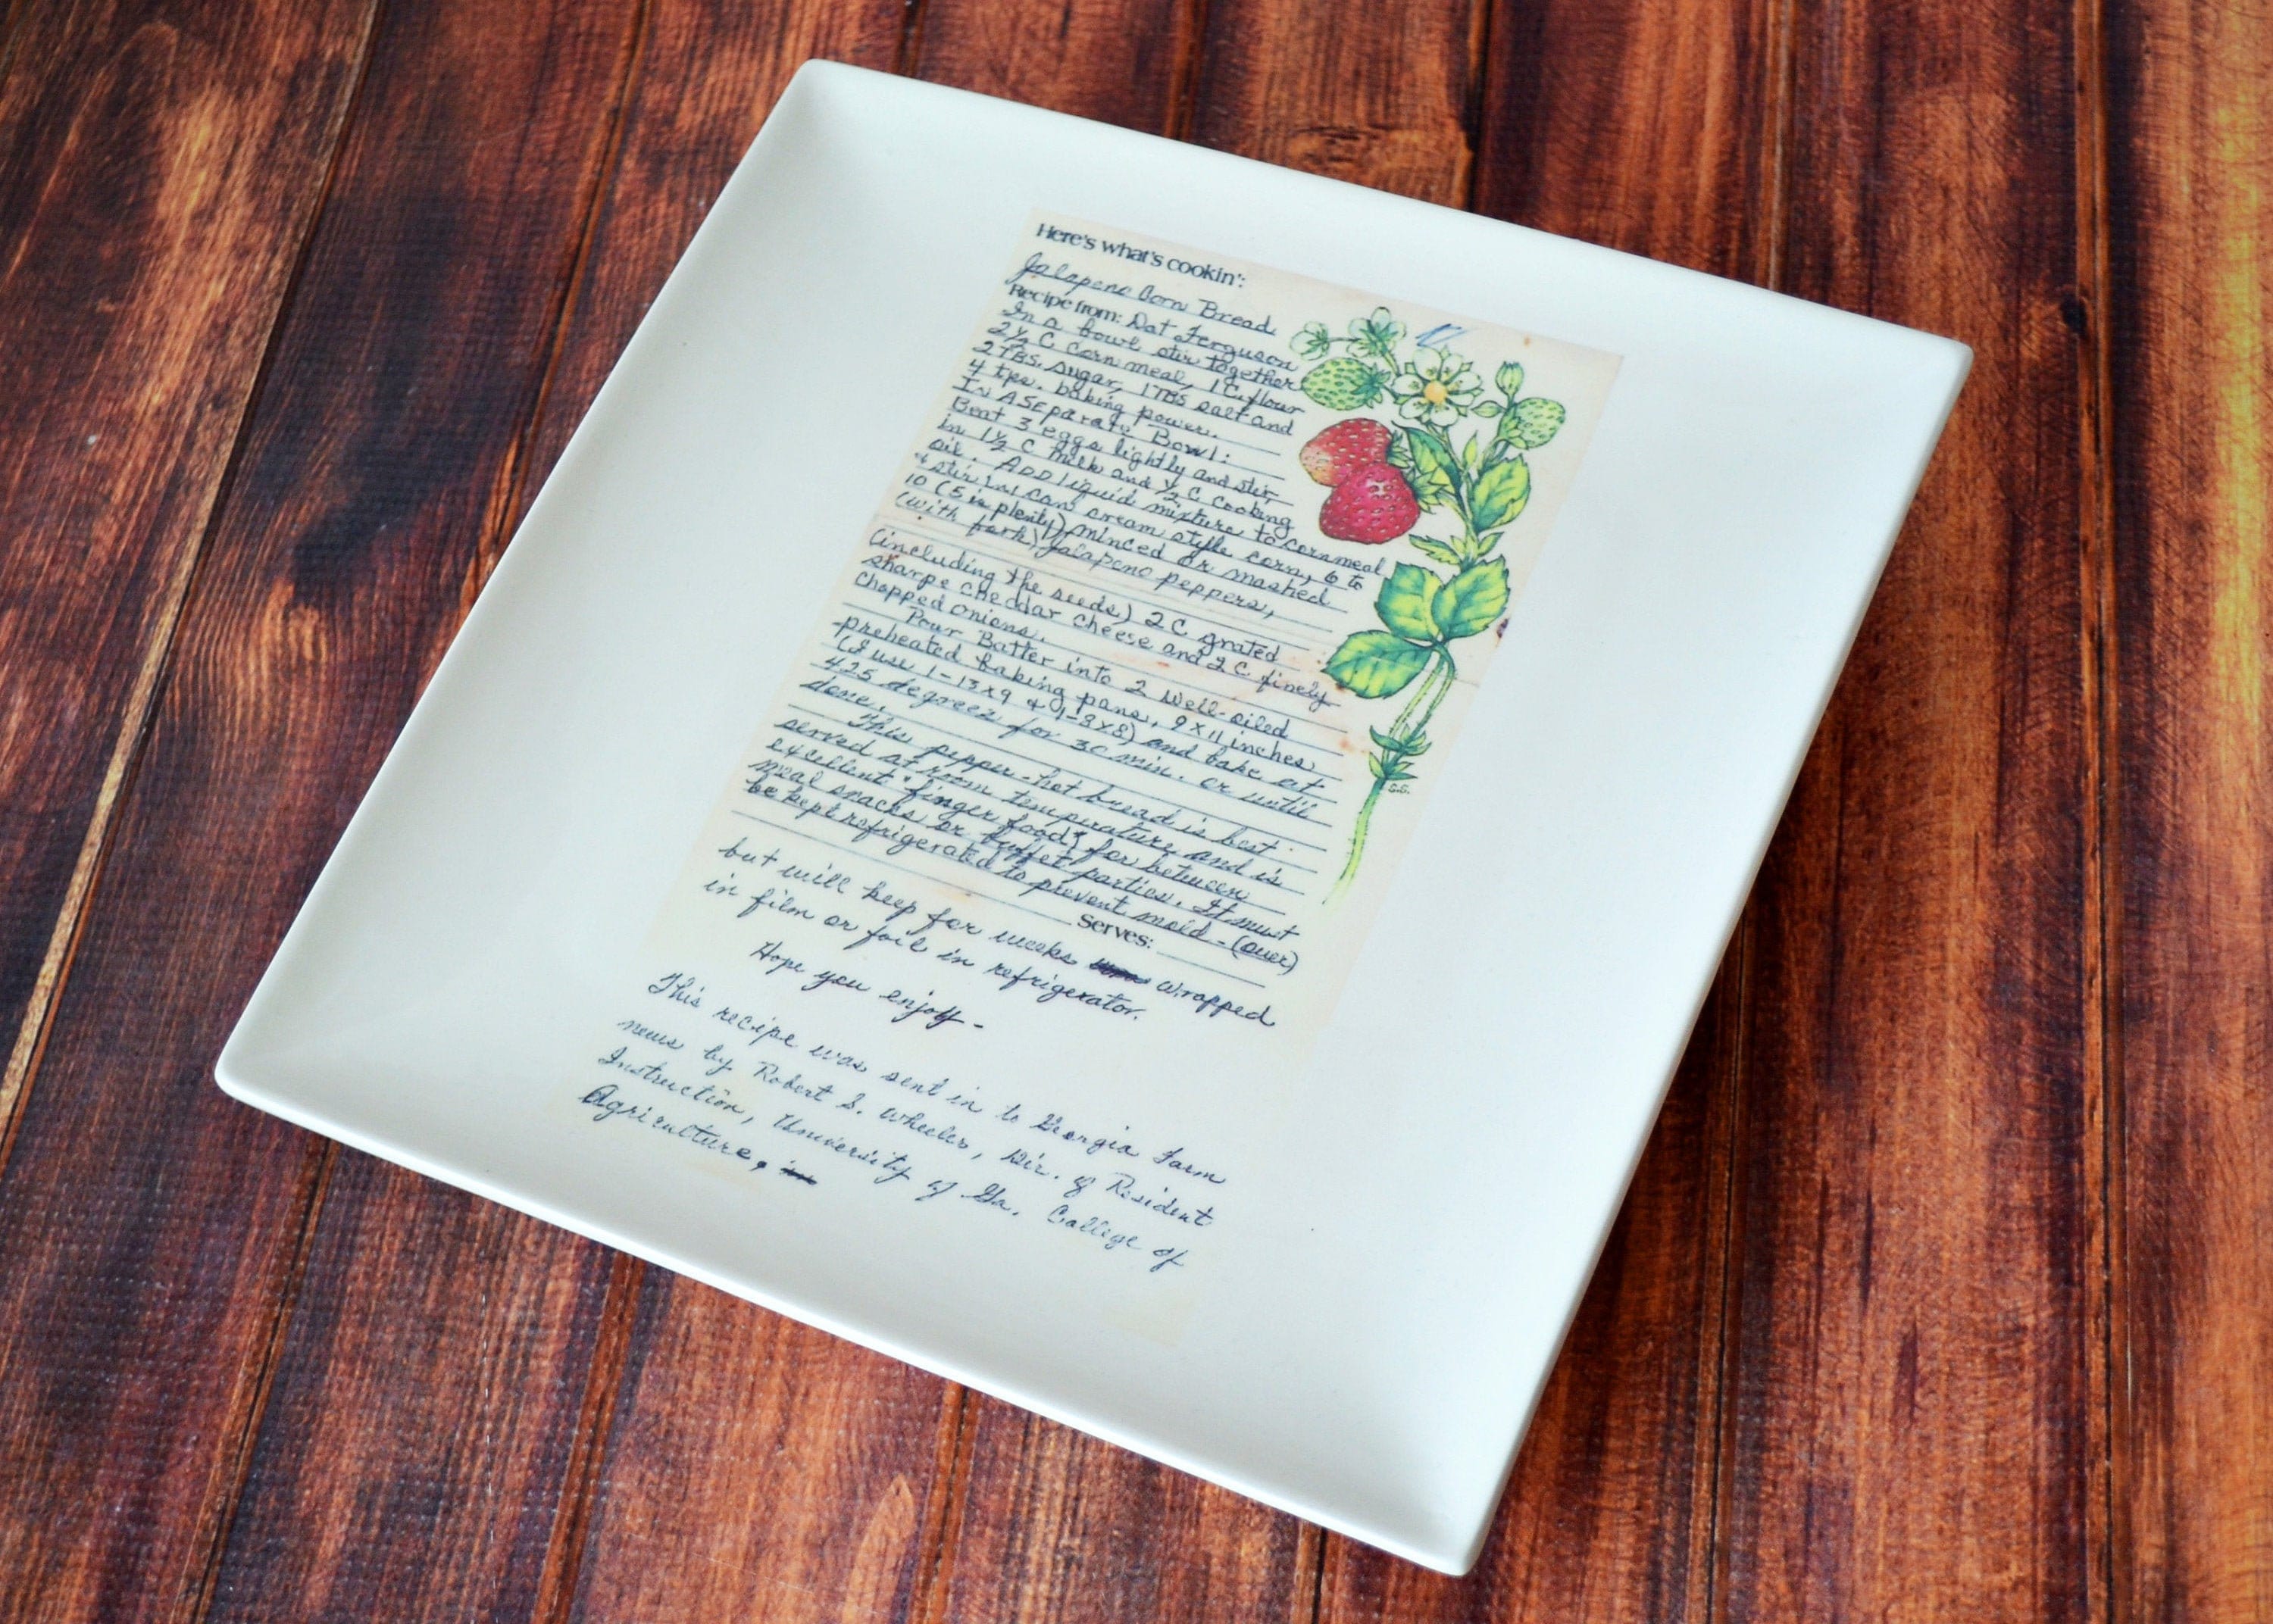 Here's what's cookin':
Jalapeno Corn Bread
Recipe from: Dot Ferguson
In a bowl stir together
2½ C Corn meal, 1 C. flour
2 TBS. sugar, 1 TBS salt and
4 tps. baking power.
In A SEparate Bowl:
Beat 3 eggs lightly and stir
in 1½ C milk and ½ C. Cooking
oil. ADD liquid mixture to cornmeal
& stir in 1 can cream style corn, 6 to
10 (5 is plenty) minced or mashed
(with fork) jalapeno peppers,
(including the seeds) 2 C grated
sharpe cheddar cheese and 2 C finely
chopped onions.
Pour Batter into 2 well-oiled
preheated baking pans, 9 x 11 inches
(I use 1-13x9 & 1-8x8) and bake at
425 degrees for 30 min. or until
done.
This pepper-hot bread is best
served at room temperature and is
excellent "finger food" for between
meal snacks or buffet parties. It must
be kept refrigerated to prevent mold - (over)
Serves:
but will keep for weeks wrapped
in film or foil in refrigerator.
Hope you enjoy -
This recipe was sent in to Georgia Farm
news by Robert S. Wheeler, Dir. of Resident
Instruction, University of Ga. College of
Agriculture,
S.S.